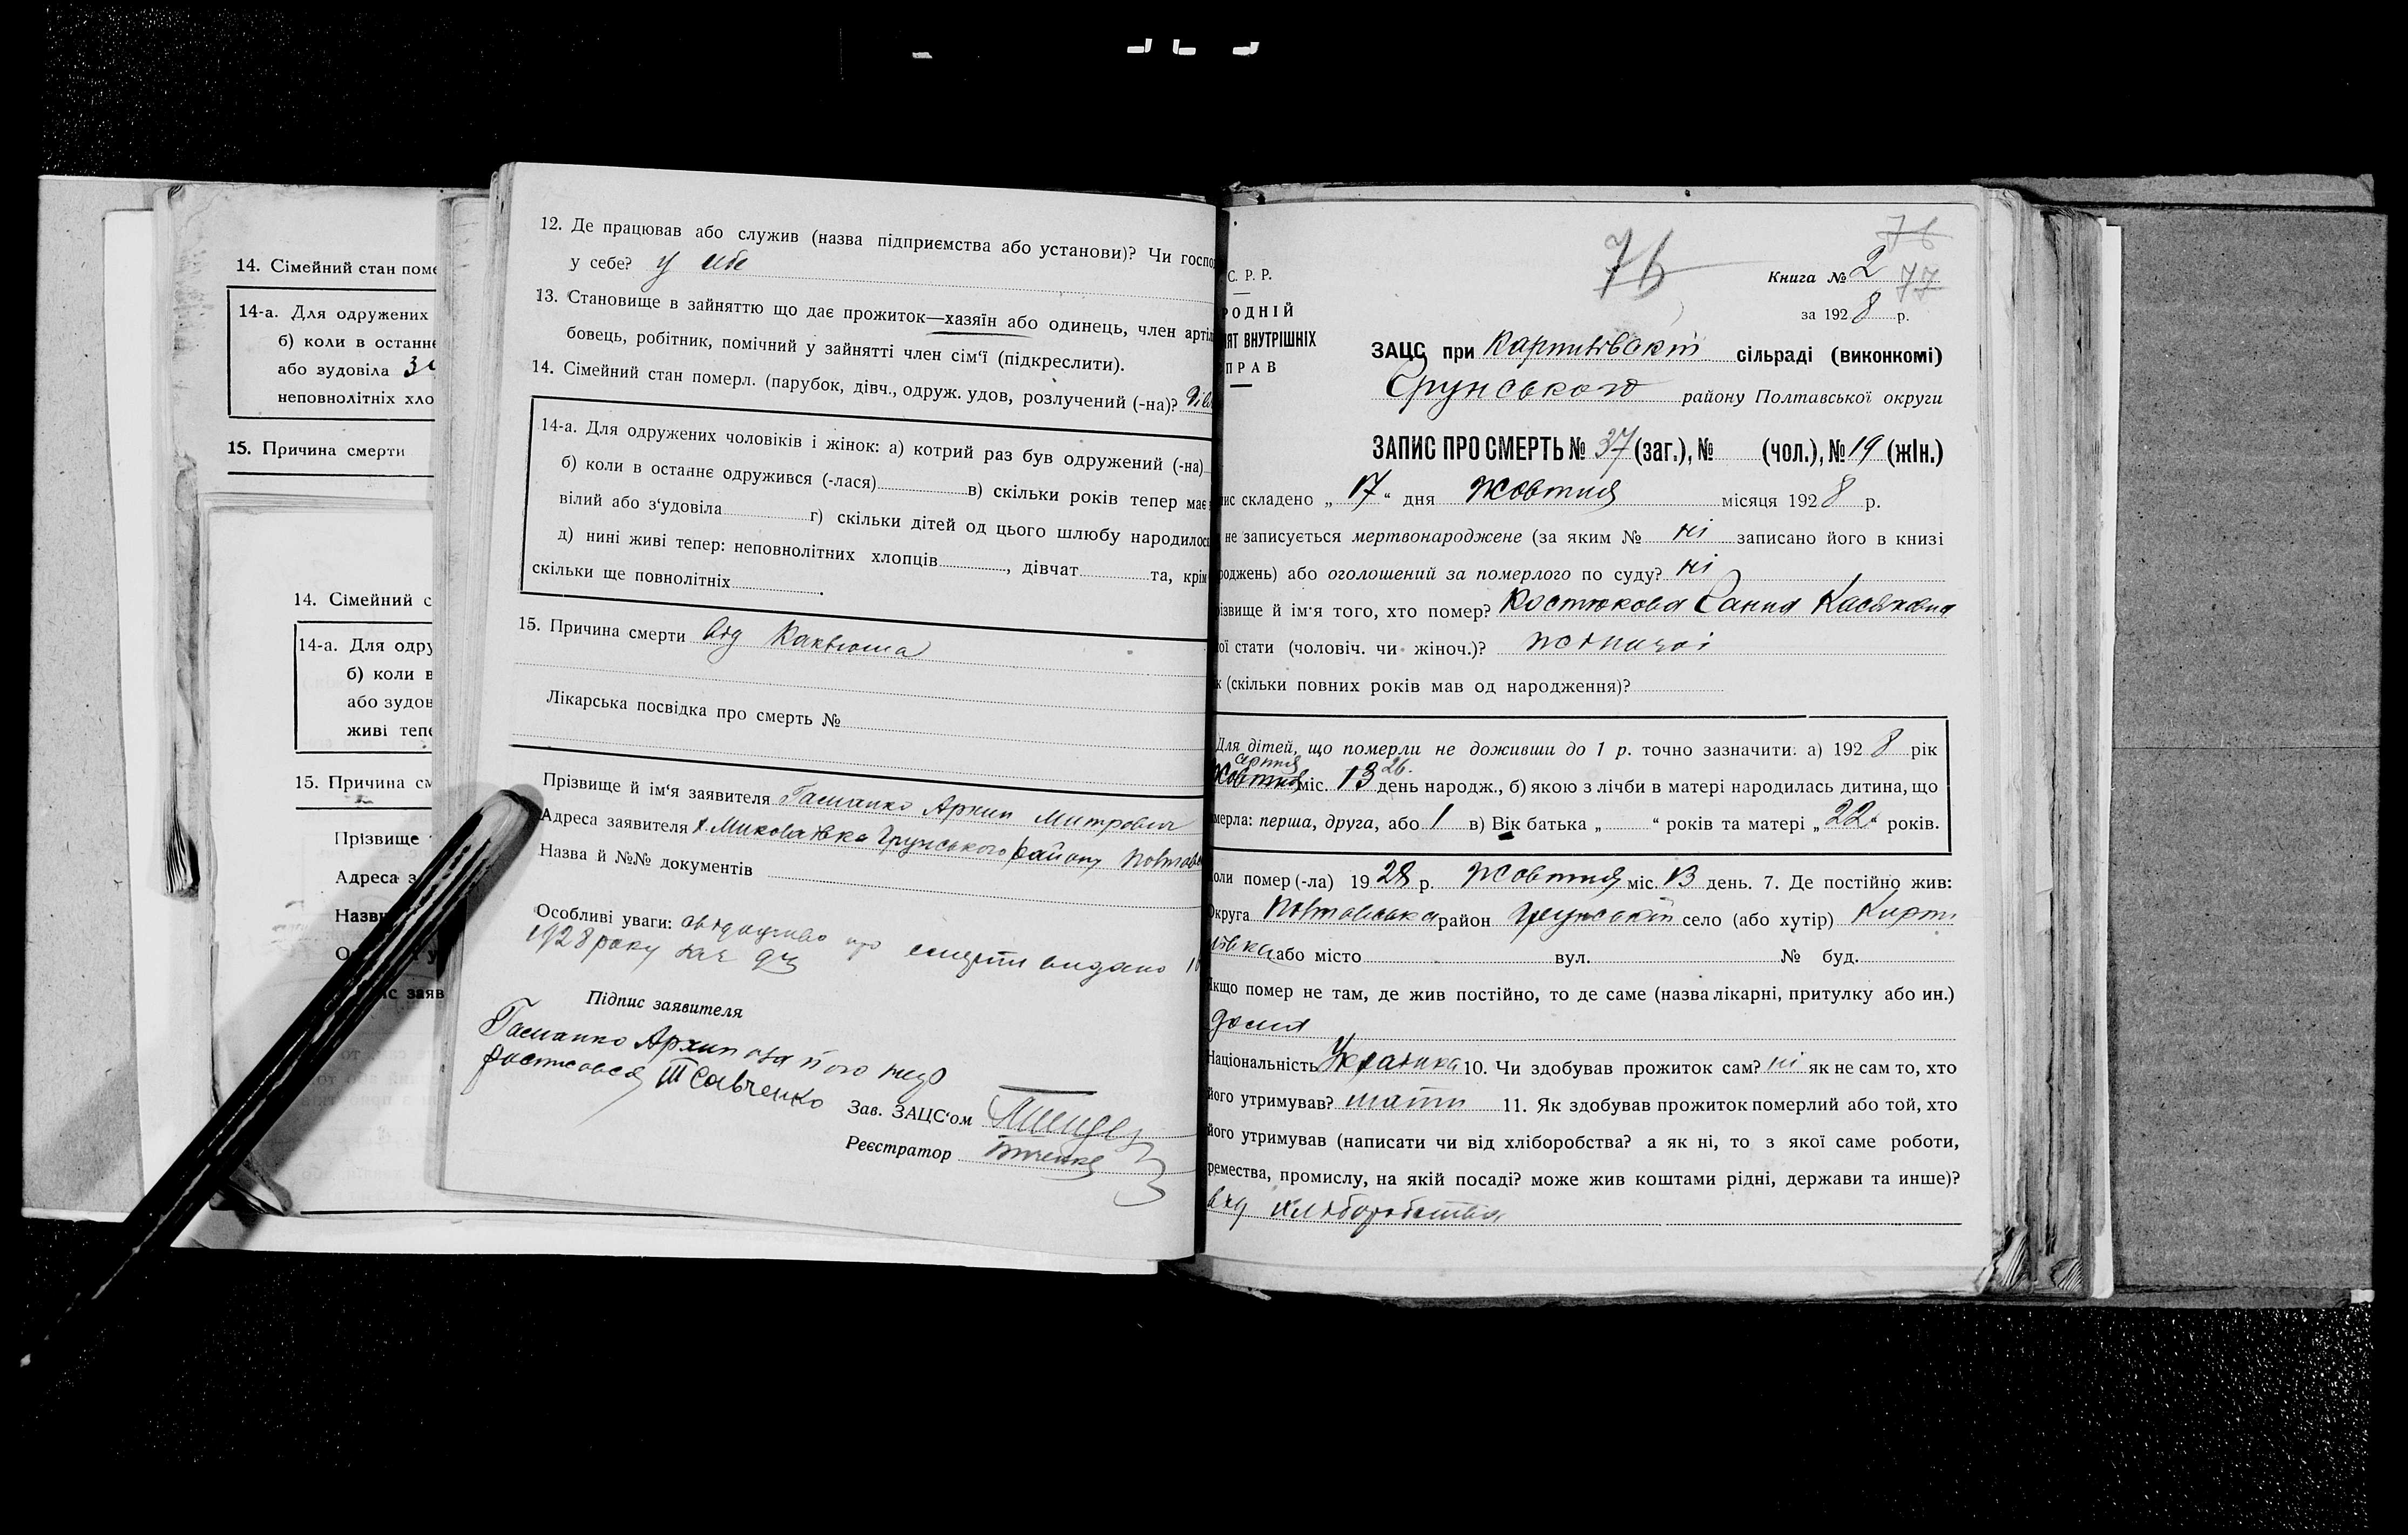 14. Сімейний стан поме
14-а. Для одружених
б) коли в останнє
або зудовіла
неповнолітніх хло
15. Причина смерти
14. Сімейний с
14-а. Для одру
б) коли в
або зудов
живі тепе
15. Причина см
Прізвище
Адреса з
Назв
заяв
12. Де працював або служив (назва підприємства або установи)? Чи госпо
у себе? у себе
13. Становище в зайняттю що дає прожиток—хазяїн або одинець, член артіл
бовець, робітник, помічний у зайнятті член сім‘ї (підкреслити).
14. Сімейний стан померл. (парубок, дівч., одруж. удов, розлучений (-на)? дівч
14-а. Для одружених чоловіків і жінок: а) котрий раз був одружений (-на)
б) коли в останнє одружився (-лася) в) скільки років тепер має
вілий або з‘удовіла г) скільки дітей од цього шлюбу народилося
д) нині живі тепер: неповнолітних хлопців, дівчат та, крім
скільки ще повнолітніх.
15. Причина смерти від Каклюша
Лікарська посвідка про смерть №
Прізвище й ім‘я заявителя Архип Митрович
Адреса заявителя х. Миколаївка Грунського району Полтавс
Назва й №№ документів
Особливі уваги: про смерти видано
1928 року за № 93
Підпис заявителя
Архип а за його
росписався Ш Савченко
Зав. ЗАЦС‘ом
Реєстратор
76
76
Книга № 2 77
за 1928 р.
С. Р. Р.
РОДНІЙ
ЯТ ВНУТРІШНІХ
ПРАВ
ЗАЦС при сільраді (виконкомі)
Грунського району Полтавської округи
ЗАПИС ПРО СМЕРТЬ № 37 (заг.), № (чол.), № 19 (жін.)
ис складено „ 17 “ дня Жовтня місяця 1928 р.
не записується мертвонароджене (за яким № ні записано його в книзі
роджень) або оголошений за померлого по суду? ні
ізвище й ім‘я того, хто помер? Костюкова Ганна Касяновна
ої стати (чоловіч. чи жіноч.)? жіночої
к (скільки повних років мав од народження)?
Для дітей, що померли не доживши до 1 р. точно зазначити: а) 1928 рік
Жовтня міс. 13 26. день народж., б) якою з лічби в матері народилась дитина, що
мерла: перша, друга, або 1 в) Вік батька „ “ років та матері „ 22 “ років.
оли помер (-ла) 1928 р. Жовтня міс. 13 день. 7. Де постійно жив:
Округа Полтавська район Грунський село (або хутір)
або місто вул. № буд.
Якщо помер не там, де жив постійно, то де саме (назва лікарні, притулку або ин.)
дома
Національність Українка 10. Чи здобував прожиток сам? ні як не сам то, хто
його утримував? мати 11. Як здобував прожиток померлий або той, хто
його утримував (написати чи від хліборобства? а як ні, то з якої саме роботи,
ремества, промислу, на якій посаді? може жив коштами рідні, держави та инше)?
від хліборобства